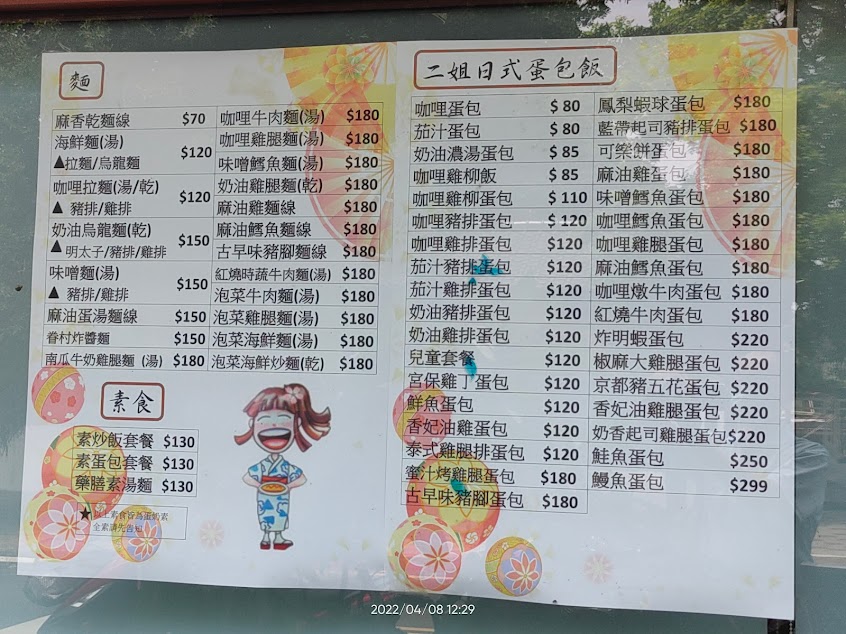 麵
麻香乾麵線 $70
海鮮麵(湯) $120
▲拉麵/烏龍麵
咖哩拉麵(湯/乾) $120
▲ 豬排/雞排
奶油烏龍麵(乾) $150
▲明太子/豬排/雞排
味噌麵(湯) $150
▲ 豬排/雞排
麻油蛋湯麵線 $150
眷村炸醬麵 $150
南瓜牛奶雞腿麵 (湯) $180
咖哩牛肉麵(湯) $180
咖哩雞腿麵(湯) $180
味噌鱈魚麵(湯) $180
奶油雞腿麵(乾) $180
麻油雞麵線 $180
麻油鱈魚麵線 $180
古早味豬腳麵線 $180
紅燒時蔬牛肉麵(湯) $180
泡菜牛肉麵(湯) $180
泡菜雞腿麵(湯) $180
泡菜海鮮麵(湯) $180
泡菜海鮮炒麵(乾) $180
素食
素炒飯套餐 $130
素蛋包套餐 $130
藥膳素湯麵 $130
★以上素食皆為蛋奶素
全素請先告知
二姐日式蛋包飯
咖哩蛋包 $ 80
茄汁蛋包 $ 80
奶油濃湯蛋包 $ 85
咖哩雞柳飯 $ 85
咖哩雞柳蛋包 $ 110
咖哩豬排蛋包 $ 120
咖哩雞排蛋包 $120
茄汁豬排蛋包 $120
茄汁雞排蛋包 $120
奶油豬排蛋包 $120
奶油雞排蛋包 $120
兒童套餐 $120
宮保雞丁蛋包 $120
鮮魚蛋包 $120
香妃油雞蛋包 $120
泰式雞腿排蛋包 $120
蜜汁烤雞腿蛋包 $180
古早味豬腳蛋包 $180
鳳梨蝦球蛋包 $180
藍帶起司豬排蛋包 $180
可樂餅蛋包 $180
麻油雞蛋包 $180
味噌鱈魚蛋包 $180
咖哩鱈魚蛋包 $180
咖哩雞腿蛋包 $180
麻油鱈魚蛋包 $180
咖哩燉牛肉蛋包 $180
紅燒牛肉蛋包 $180
炸明蝦蛋包 $220
椒麻大雞腿蛋包 $220
京都豬五花蛋包 $220
香妃油雞腿蛋包 $220
奶香起司雞腿蛋包 $220
鮭魚蛋包 $250
鰻魚蛋包 $299
2022/04/08 12:29